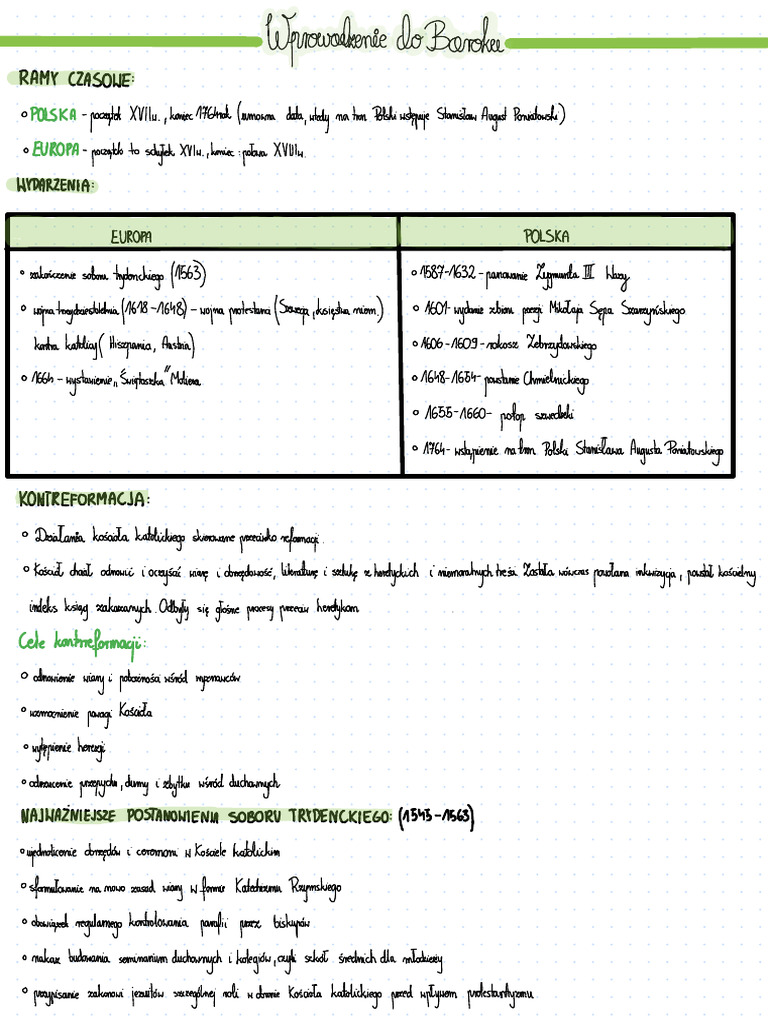 Wprowadzenie do Baroku
RAMY CZASOWE:
POLSKA - początek XVIIw., koniec 1764rok (umowna data, wtedy na tron Polski wstępuje Stanisław August Poniatowski)
EUROPA - początek to schyłek XVIw., koniec: połowa XVIIIw.
WYDARZENIA:
EUROPA
zakończenie soboru trydenckiego (1563)
wojna trzydziestoletnia (1618-1648) - wojna protestanci (Szwecja, księstwa niem.)
kontra katolicy (Hiszpania, Austria)
1664 - wystawienie „Świętoszka" Moliera
POLSKA
1587-1632 - panowanie Zygmunta III Wazy
1601- wydanie zbioru poezji Mikołaja Sępa Szarzyńskiego
1606-1609 - rokosz Zebrzydowskiego
1648-1654- powstanie Chmielnickiego
1655-1660- potop szwedzki
1764- wstąpienie na tron Polski Stanisława Augusta Poniatowskiego
KONTREFORMACJA:
Działania kościoła katolickiego skierowane przeciwko reformacji.
Kościół chciał odnowić i oczyścić wiarę i obrzędowość, literaturę i sztukę z heretyckich i niemoralnych treści. Została wówczas powołana inkwizycja, powstał kościelny
indeks ksiąg zakazanych. Odbyły się głośne procesy przeciw heretykom.
Cele kontrreformacji:
odnowienie wiary i pobożności wśród wyznawców
wzmocnienie powagi Kościoła
wytępienie herezji
odrzucenie przepychu, dumy i zbytku wśród duchownych
NAJWAŻNIEJSZE POSTANOWIENIA SOBORU TRYDENCKIEGO: (1545-1563)
ujednolicenie obrzędów i ceremonii w Kościele katolickim
sformułowanie na nowo zasad wiary w formie Katechizmu Rzymskiego
obowiązek regularnego kontrolowania parafii przez biskupów
nakaz budowania seminarium duchownych i kolegiów, czyli szkół średnich dla młodzieży
przypisanie zakonowi jezuitów szczególnej roli w obronie Kościoła katolickiego przed wpływem protestantyzmu